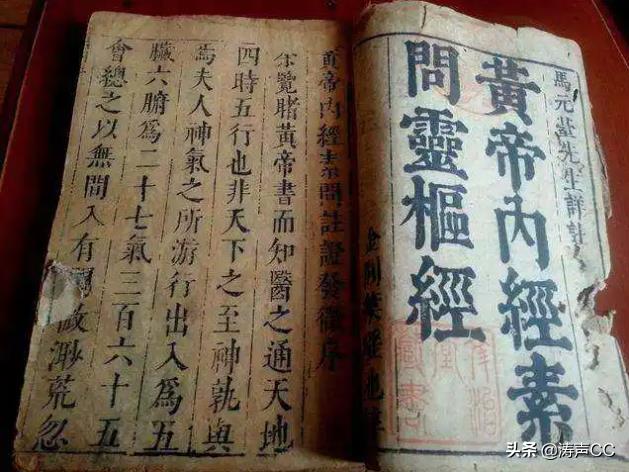 馬元臺先生詳
黃帝內經素
問靈樞經
黃帝內經素問註證發微序
余覽睹黃帝書而知醫之通天地
四時五行也非天下之至神孰與
焉夫人神氣之所游行出入爲五
臟六腑爲二十七氣三百六十五
會總之以無間入有故渺荒忽
头条 @涛声CC